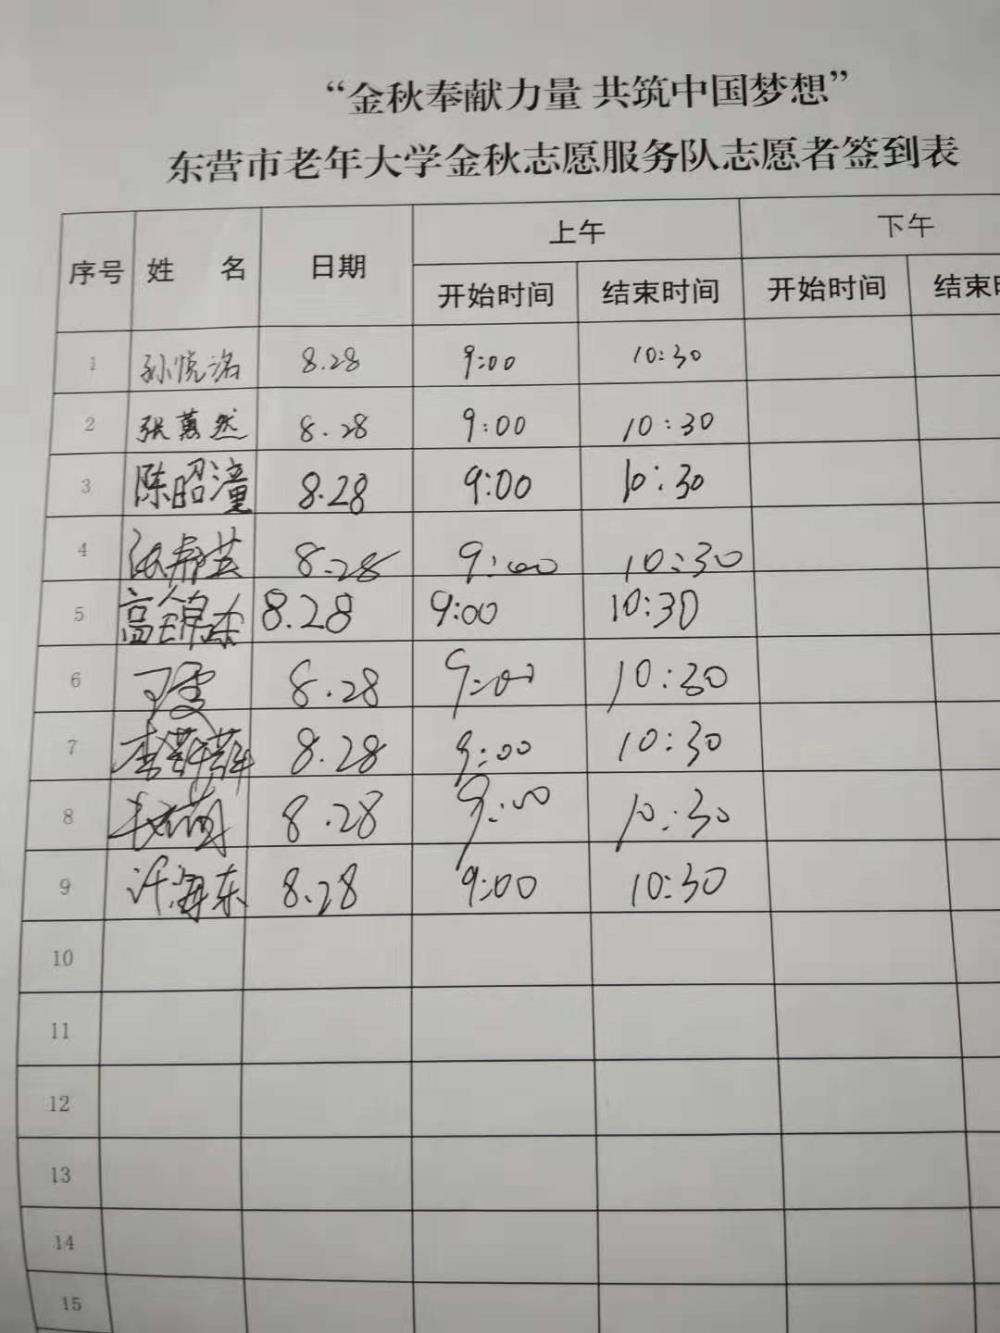 “金秋奉献力量 共筑中国梦想”
东营市老年大学金秋志愿服务队志愿者签到表
序号 姓 名 日期 上午 下午
开始时间 结束时间 开始时间 结束
1 孙悦洺 8.28 9:00 10:30
2 张蕙然 8.28 9:00 10:30
3 陈昭潼 8.28 9:00 10:30
4 8.28 9:00 10:30
5 高锦 8.28 9:00 10:30
6 8.28 9:00 10:30
7 李 8.28 9:00 10:30
8 8.28 9:00 10:30
9 许海东 8.28 9:00 10:30
10
11
12
13
14
15